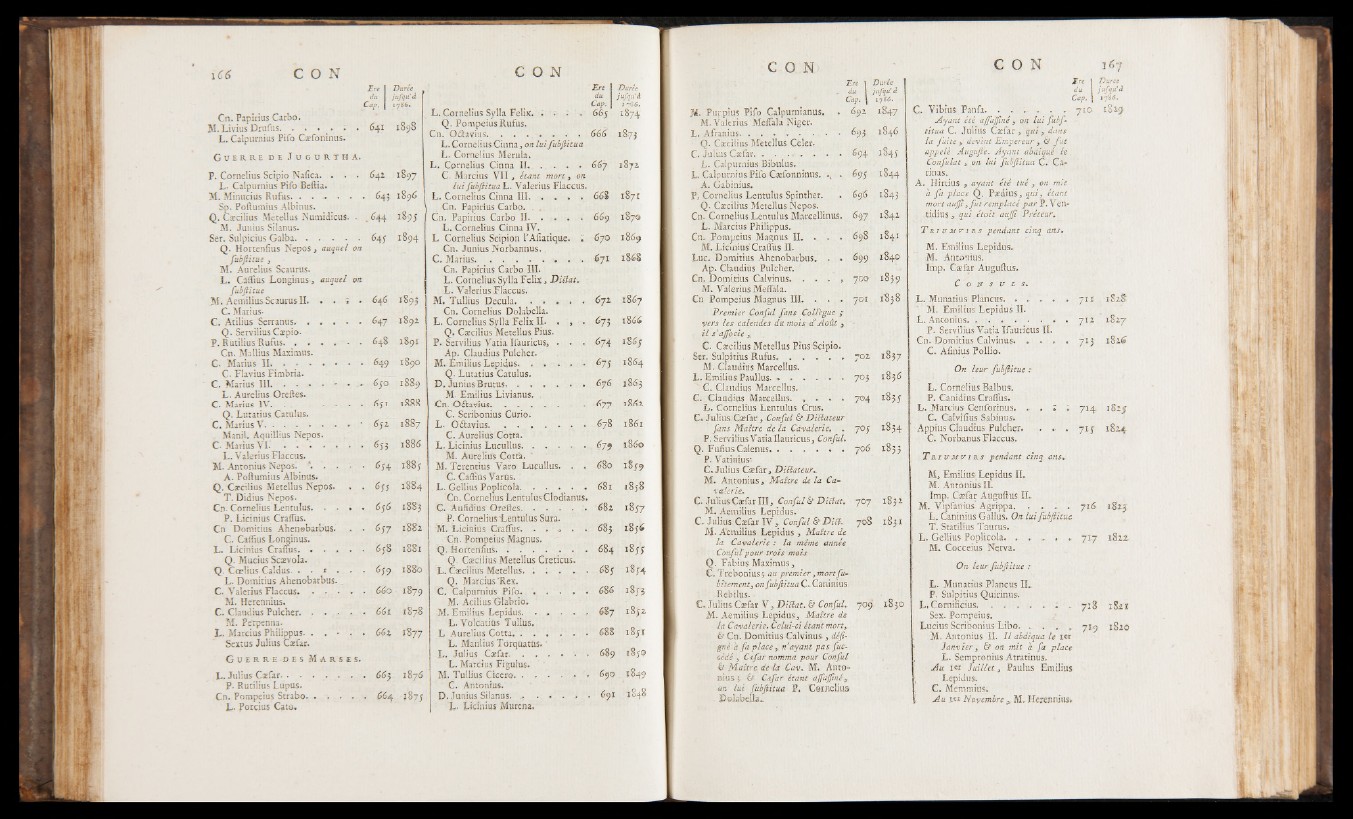 166 CON
CON
Ere du Cap. | Durée jusqu'à 1786.
Cn. Papirius Carbo.
M. Livius Drusus. . . . . . . 641 1898
L. Calpurnius Piso Cæsoninus.
GUERRE DE JUGURTHA.
P. Cornelius Scipio Nasica. . . . 642 1897
L. Calpurnius Piso Bestia.
M. Minucius Rufus. . . . . . 643 1896
Sp. Postumius Albinus.
Q. Cæcilius Metellus Numidicus. . 644 1895
M. Junius Silanus.
Ser. Sulpicius Galba. . . . . . 645 1894
Q. Hortensius Nepos, auquel on
substitue,
M. Aurelius Scaurus.
L. Cassius Longinus, auquel on
substitue
M. Aemilius Scaurus II. . . . . 646 1893
C. Marius.
C. Atilius Serranus. . . . . . 647 1892
Q. Servilius Cæpio.
P. Rutilius Rufus. . . . . . . 648 1891
Cn. Mallius Maximus.
C. Marius II. . . . . . . . 649 1890
C. Flavius Fimbria.
C. Marius III. . . . . . . . 650 1889
L. Aurelius Orestes.
C. Marius IV. . . . . . . . 651 1888
Q. Lutatius Catulus.
C. Marius V. . . . . . . . . 652 1887
Manil. Aquillius Nepos.
C. Marius VI. . . . . . . . 653 1886
L. Valerius Flaccus.
M. Antonius Nepos. . . . . . 654 1885
A. Postumius Albinus.
Q. Cæcilius Metellus Nepos. . . 655 1884
T. Didius Nepos.
Cn. Cornelius Lentulus. . . . . 656 1883
P. Licinius Crassus.
Cn Domitius Ahenobarbus. . . . 657 1882
C. Cassius Longinus.
L. Licinius Crassus. . . . . . 658 1881
Q. Mucius Scævola.
Q. Cœlius Caldus. . . . . . . 659 1880
L. Domitius Ahenobarbus.
C. Valerius Flaccus. . . . . . 660 1879
M. Herennius.
C. Claudius Pulcher. . . . . . 661 1878
M. Perpenna.
L. Marcius Philippus. . . . . . 662 1877
Sextus Julius Cæsar.
GUERRE DES MARSES.
L. Julius Cæsar. . . . . . . . 663 1876
P. Rutilius Lupus.
Cn. Pompeius Strabo. . . . . . 664 1875
L. Porcius Cato.
Ere du Cap. | Durée jusqu'à 1786.
L. Cornelius Sylla Felix. . . . . 665 1874
Q. Pompeius Rufus.
Cn. Octavius. . . . . . . . 666 1873
L. Cornelius Cinna, on lui substitue
L. Cornelius Merula.
L. Cornelius Cinna II. . . . . 667 1872
C. Marcius VII, étant mort, on
lui substitua L. Valerius Flaccus.
L. Cornelius Cinna III. . . . . 668 1871
Cn. Papirius Carbo.
Cn. Papirius Carbo II. . . . . 669 1870
L. Cornelius Cinna IV.
L. Cornelius Scipion l'Asiatique. . 670 1869
Cn. Junius Norbannus.
C. Marius. . . . . . . . . 671 1868
Cn. Papirius Carbo III.
L. Cornelius Sylla Felix, Dictat.
L. Valerius Flaccus.
M. Tullius Decula. . . . . . 672 1867
Cn. Cornelius Dolabella.
L. Cornelius Sylla Felix II. . . . 673 1866
Q. Cæcilius Metellus Pius.
P. Servilius Vatia Isauricus, . . . 674 1865
Ap. Claudius Pulcher.
M. Emilius Lepidus. . . . . . 675 1864
Q. Lutatius Catulus.
D. Junius Brutus. . . . . . . 676 1863
M. Emilius Livianus.
Cn. Octavius. . . . . . . . 677 1862
C. Scribonius Curio.
L. Octavius. . . . . . . . 678 1861
C. Aurelius Cotta.
L. Licinius Lucullus. . . . . . 679 1860
M. Aurelius Cotta.
M. Terentius Varo Lucullus. . . 680 1859
C. Cassius Varus.
L. Gellius Poplicola. . . . . . 681 1858
Cn. Cornelius Lentulus Clodianus.
C. Aufidius Orestes. . . . . . 682 1857
P. Cornelius Lentulus Sura.
M. Licinius Crassus. . . . . . 683 1856
Cn. Pompeius Magnus.
Q. Hortensius. . . . . . . . 684 1855
Q. Cæcilius Metellus Creticus.
L. Cæcilius Metellus. . . . . . 685 1854
Q. Marcius Rex.
C. Calpurnius Piso. . . . . . 686 1853
M. Acilius Glabrio.
M. Emilius Lepidus. . . . . . 687 1852
L. Volcatius Tullus.
L Aurelius Cotta. . . . . . . 688 1851
L. Manlius Torquatus.
L. Julius Cæsar. . . . . . . 689 1850
L. Marcius Figulus.
M. Tullius Cicero. . . . . . . 690 1849
C. Antonius.
D. Junius Silanus. . . . . . . 691 1848
L. Licinius Murena.
CON
CON 167
Ere du Cap. | Durée jusqu'à 1786.
M. Purpius Piso Calpurnianus. . 692 1847
M. Valerius Messala Niger.
L. Afranius. . . . . . . . . 693 1846
Q. Cæcilius Metellus Celer.
C. Julius Cæsar. . . . . . . . 694 1845
L. Calpurnius Bibulus.
L. Calpurnius Piso Cæsonninus. . . 695 1844
A. Gabinius.
P. Cornelius Lentulus Spinther. . 696 1843
Q. Cæcilius Metellus Nepos.
Cn. Cornelius Lentulus Marcellinus. 697 1842
L. Marcius Philippus.
Cn. Pompeius Magnus II. . . . 698 1841
M. Licinius Crassus II.
Luc. Domitius Ahenobarbus. . . 699 1840
Ap. Claudius Pulcher.
Cn. Domitius Calvinus. . . . . 700 1839
M. Valerius Messala.
Cn Pompeius Magnus III. . . . 701 1838
Premier Consul sans Collègue;
vers les calendes du mois d'Août,
il s'associe,
C. Cæcilius Metellus Pius Scipio.
Ser. Sulpitius Rufus. . . . . . 702 1837
M. Claudius Marcellus.
L. Emilius Paullus. . . . . . . 703 1836
C. Claudius Marcellus.
C. Claudius Marcellus. . . . . 704 1835
L. Cornelius Lentulus Crus.
C. Julius Cæsar, Consul & Dictateur
sans Maître de la Cavalerie. . 705 1834
P. Servilius Vatia Isauricus, Consul.
Q. Fufius Calenus. . . . . . . 706 1833
P. Vatinius.
C. Julius Cæsar, Dictateur.
M. Antonius, Maître de la Ca-
valerie.
C. Julius Cæsar III, Consul & Dictat. 707 1832
M. Aemilius Lepidus.
C. Julius Cæsar IV, Consul & Dict. 708 1831
M. Aemilius Lepidus, Maître de
la Cavalerie : la même année
Consul pour trois mois
Q. Fabius Maximus,
C. Trebonius; au premier, mort su-
bitement, on substitua C. Caninius
Rebilus.
C. Julius Cæsar V, Dictat. & Consul. 709 1830
M. Aemilius Lepidus, Maître de
la Cavalerie. Celui-ci étant mort,
& Cn. Domitius Calvinus, dési-
gné à sa place, n'ayant pas suc-
cédé, César nomma pour Consul
& Maître de la Cav. M. Anto-
nius; & César étant assassiné,
on lui substitua P. Cornelius
Dolabella.
Ere du Cap. | Durée jusqu'à 1786.
C. Vibius Pansa. . . . . . . 710 1829
Ayant été assassiné, on lui subs-
titua C. Julius Cæsar, qui, dans
la suite, devint Empereur, & fut
appelé Auguste. Ayant abdiqué le
Consulat, on lui substitua C. Ca-
rinas.
A. Hirtius, ayant été tué, on mit
à sa place Q. Pædius, qui, étant
mort aussi, fut remplacé par P. Ven-
tidius, qui étoit aussi Préteur.
TRIUMVIRS pendant cinq ans.
M. Emilius Lepidus.
M. Antonius.
Imp. Cæsar Augustus.
CONSULS.
L. Munatius Plancus. . . . . . 711 1828
M. Emilius Lepidus II.
L. Antonius. . . . . . . . 712 1827
P. Servilius Vatia Isauricus II.
Cn. Domitius Calvinus. . . . . 713 1826
C. Asinius Pollio.
On leur substitue :
L. Cornelius Balbus.
P. Canidius Crassus.
L. Marcius Censorinus. . . . . 714 1825
C. Calvisius Sabinus.
Appius Claudius Pulcher. . . . 715 1824
C. Norbanus Flaccus.
TRIUMVIRS pendant cinq ans.
M. Emilius Lepidus II.
M. Antonius II.
Imp. Cæsar Augustus II.
M. Vipsanius Agrippa. . . . . 716 1823
L. Caninius Gallus. On lui substitue
T. Statilius Taurus.
L. Gellius Poplicola. . . . . . 717 1822
M. Cocceius Nerva.
On leur substitue :
L. Munatius Plancus II.
P. Sulpitius Quicinus.
L. Cornificius. . . . . . . . 718 1821
Sex. Pompeius.
Lucius Scribonius Libo. . . . . 719 1820
M. Antonius II. Il abdiqua le 1er
Janvier, & on mit à sa place
L. Sempronius Atratinus.
Au 1er Juillet, Paulus Emilius
Lepidus.
C. Memmius.
Au 1er Novembre, M. Herennius.